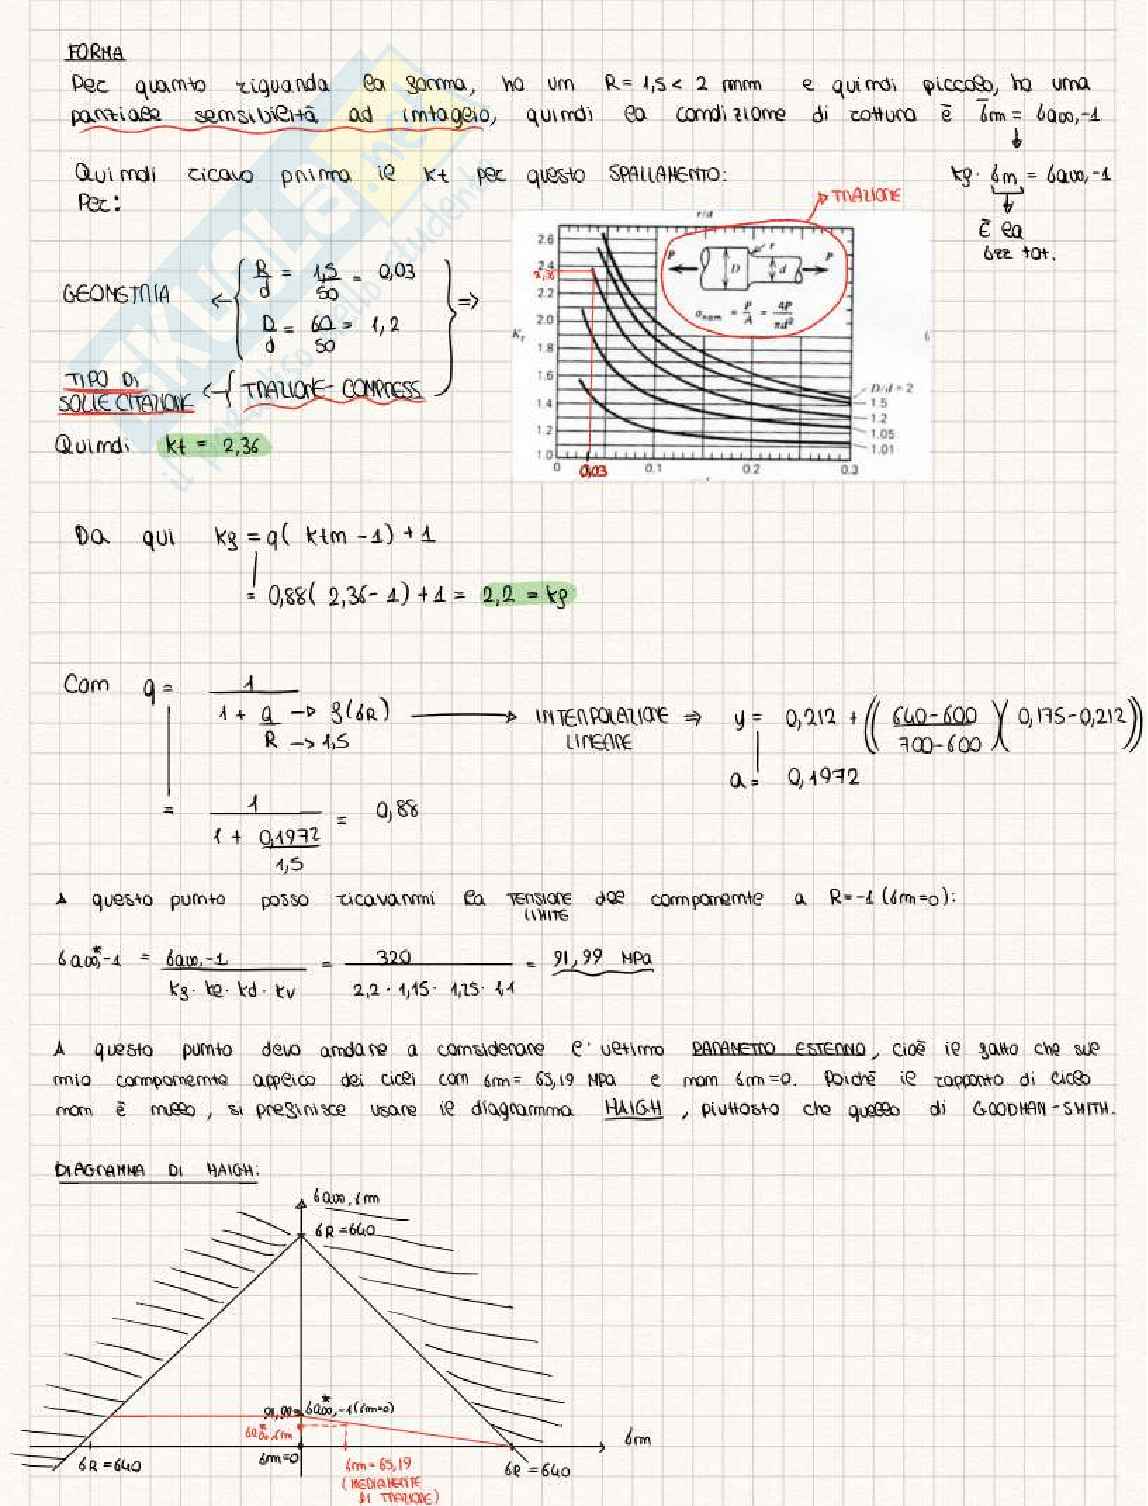 FORMA
Per quanto riguarda la forma, ho un R = 1,5 < 2 mm e quindi piccolo, ho una
parziale sensibilità ad intaglio, quindi la condizione di rottura è σ̅m = σa∞,-1
Quindi ricavo prima il kt per questo SPALLAMENTO:
kf · σm = σa∞,-1
Per:
TRAZIONE
È la
sez tot.
r/d
GEOMETRIA
R/d = 1,5/50 = 0,03
D/d = 60/50 = 1,2
TIPO DI
SOLLECITAZIONE
TRAZIONE - COMPRESS
Quindi kt = 2,36
2.6
2.4
2,36
2.2
2.0
1.8
1.6
1.4
1.2
1.0
Kt
P
D
r
d
P
σnom = P/A = 4P/πd²
D/d = 2
1.5
1.2
1.05
1.01
0
0,03
0.1
0.2
0.3
Da qui kf = q( ktm - 1) + 1
= 0,88( 2,36 - 1) + 1 = 2,2 = kf
Con q = 1 / (1 + a/R) → f(σR) → INTERPOLAZIONE LINEARE ⇒ y = 0,212 + ((640-600/700-600)(0,175-0,212))
R → 1,5
a = 0,1972
= 1 / (1 + 0,1972/1,5) = 0,88
A questo punto posso ricavarmi la TENSIONE LIMITE del componente a R=-1 (σm=0):
σa∞,-1* = σa∞,-1 / kf · kl · kd · kv = 320 / 2,2 · 1,15 · 1,25 · 1,1 = 91,99 MPa
A questo punto devo andare a considerare l'ultimo PARAMETRO ESTERNO, cioè il fatto che sul
mio componente applico dei cicli con σm = 65,19 MPa e non σm=0. Poiché il rapporto di ciclo
non è nullo, si preferisce usare il diagramma HAIGH, piuttosto che quello di GOODMAN-SMITH.
DIAGRAMMA DI HAIGH:
σa∞,σm
σR = 640
91,99 = σa∞,-1* (σm=0)
σa∞,σm*
σm
σR = 640
σm=0
σm = 65,19
(MEDIAMENTE
DI TRAZIONE)
σR = 640